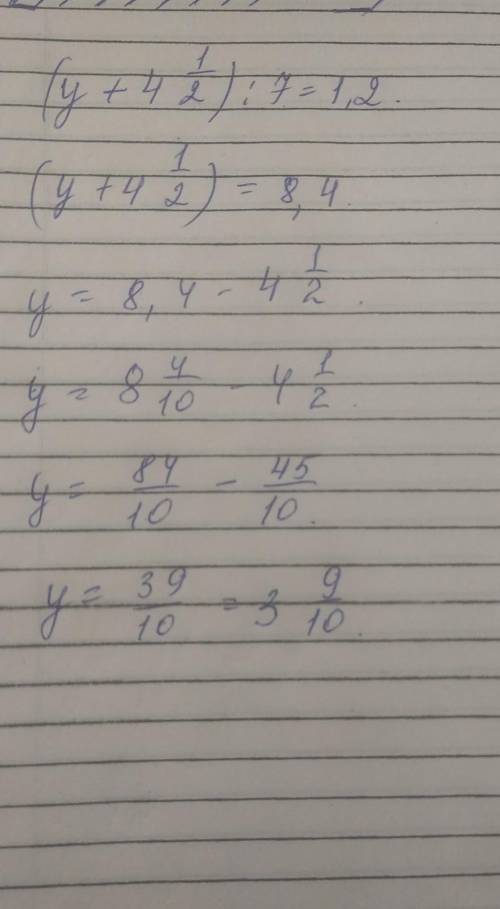 (y + 4 1/2) : 7 = 1,2.
(y + 4 1/2) = 8,4.
y = 8,4 - 4 1/2.
y = 8 4/10 - 4 1/2.
y = 84/10 - 45/10.
y = 39/10 = 3 9/10.